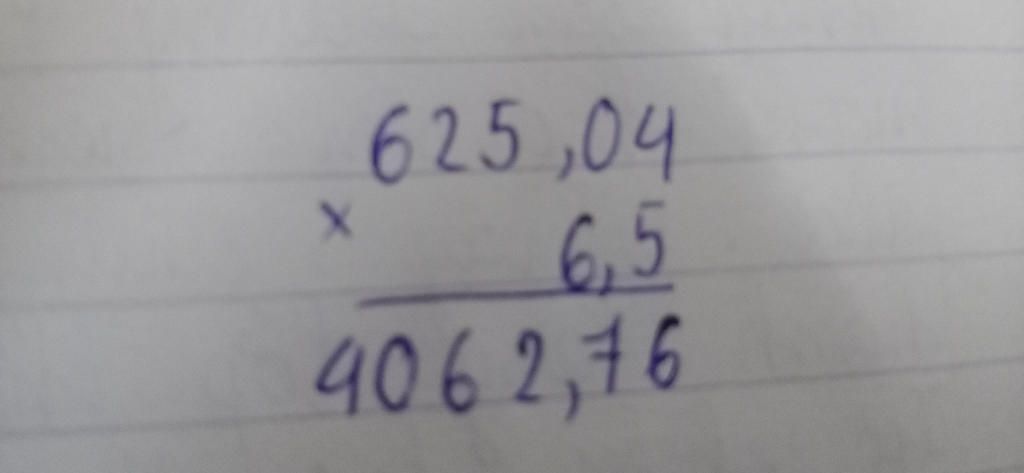 625,04
×
6,5
4062,76